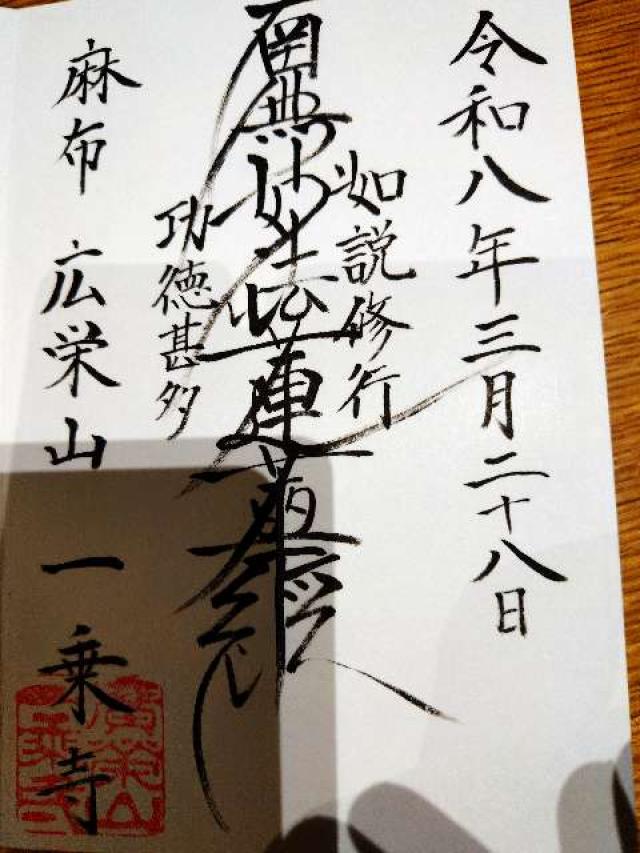 令和八年三月二十八日
如説修行
南無妙法蓮華経
功徳甚多
麻布 広栄山 一乗寺